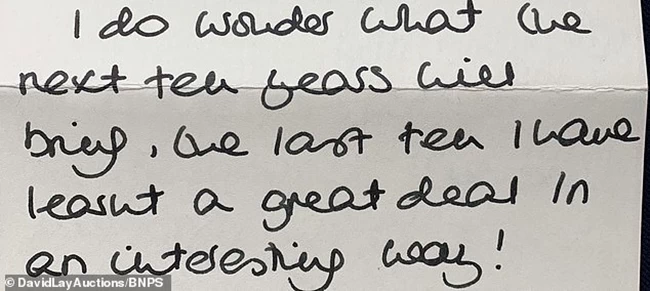 I do wonder what the
next ten years will
bring, the last ten I have
learnt a great deal in
an interesting way!
© DavidLayAuctions/BNPS